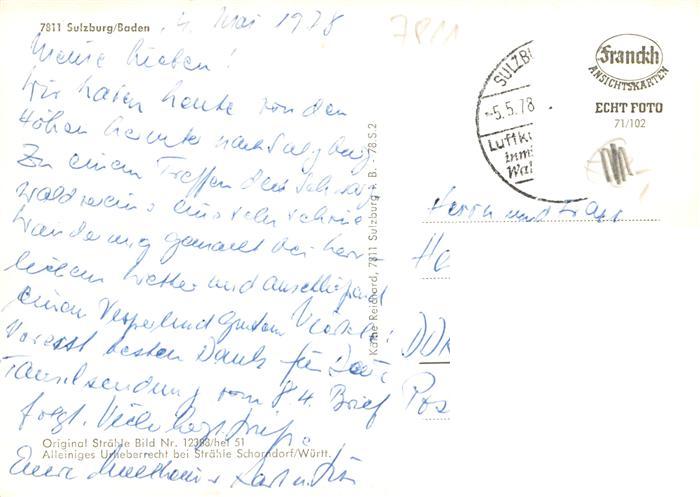 7811 Sulzburg/Baden
4. Mai 1978
7811
Meine Lieben!
Wir haben heute von den
Höhen herunter nach Sulzburg
Zu einem Treffen des Schwarz-
waldvereins eine sehr schöne
Wanderung gemacht bei herr-
lichem Wetter und anschließend
einen Vesper und gutem
Vorerst besten Dank für
sendung vom 8.4. Brief
folgt. Viele herzl. Grüße
Eure
Original Strähle Bild Nr. 12398/hef 51
Alleiniges Urheberrecht bei Strähle Schorndorf/Württ.
Käthe Reichard, 7811 Sulzburg i. B. 78.S.2
SULZB
-5.5.78
Luftk
imm
Wal
Franckh
ANSICHTSKARTEN
ECHT FOTO
71/102
Herrn und Frau
He
DD
Pos